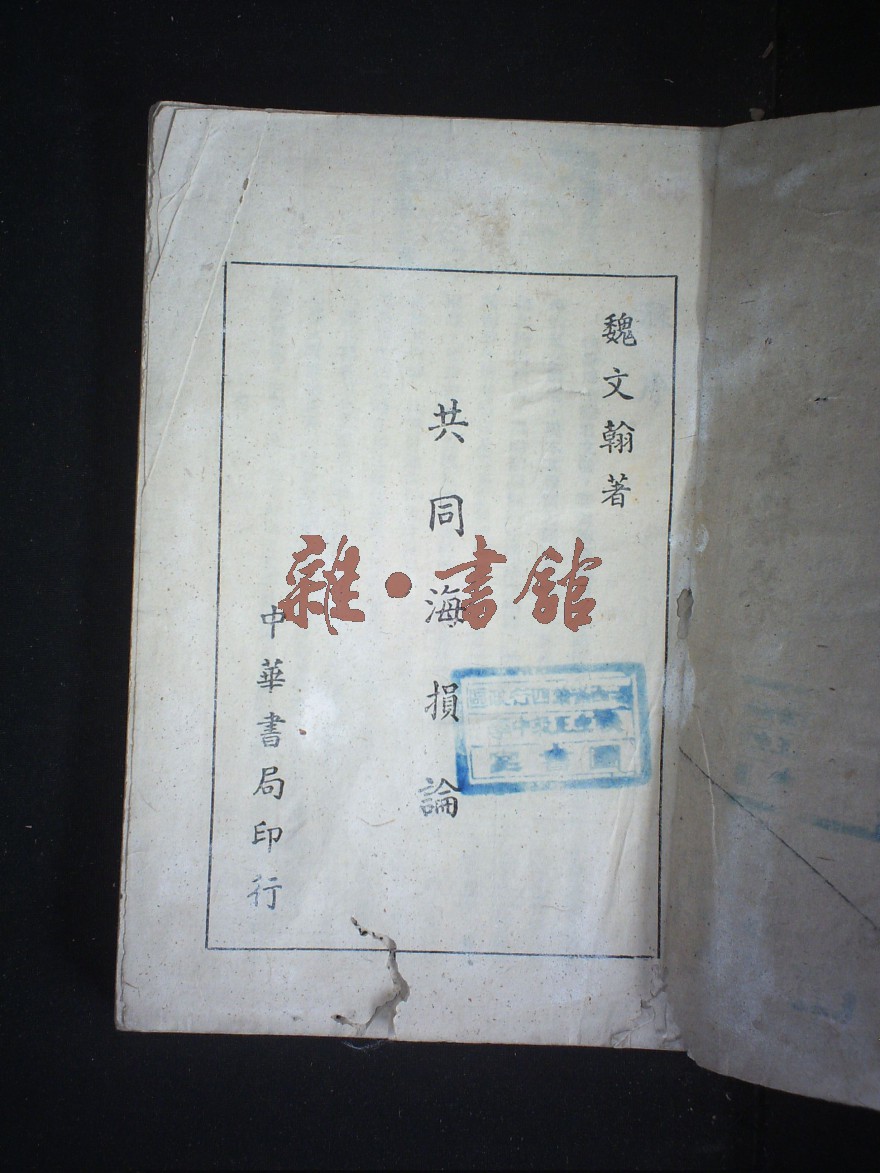 魏文翰著
共同海損論
中華書局印行
雜·書館